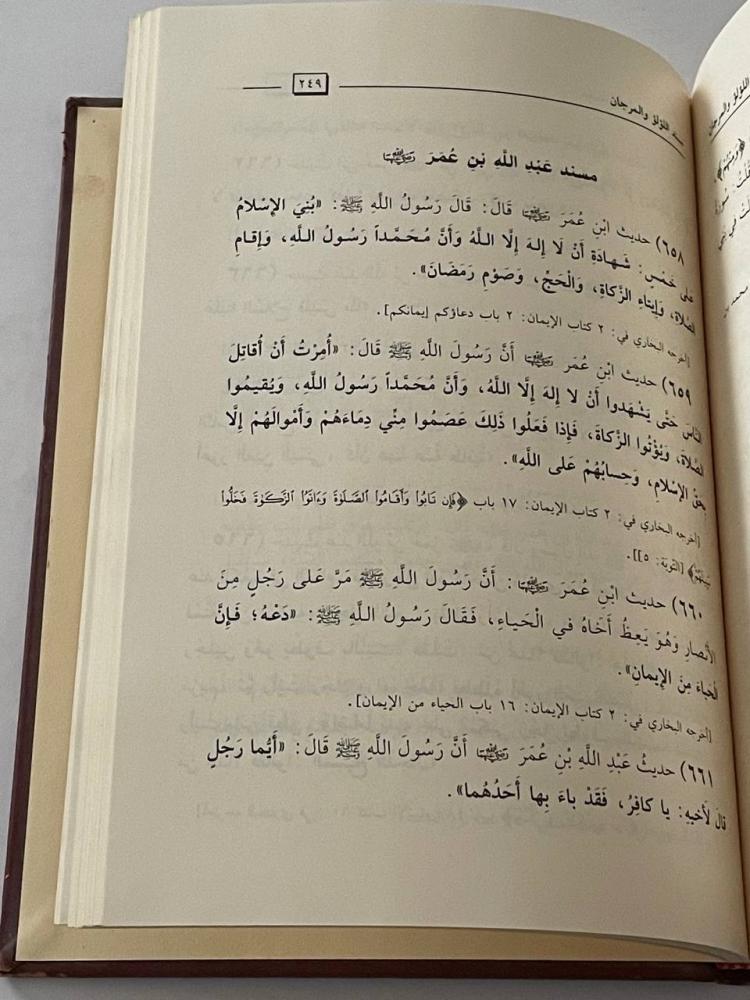 مسند اللؤلؤ والمرجان ٢٤٩
مسند عَبْدِ اللَّهِ بْنِ عُمَرَ رضي الله عنهما
٦٥٨) حديث ابْنِ عُمَرَ رضي الله عنهما قَالَ: قَالَ رَسُولُ اللَّهِ ﷺ: «بُنِيَ الإِسْلامُ
عَلى خَمْسٍ: شَهادَةِ أَنْ لَا إِلهَ إِلَّا اللَّهُ وَأَنَّ مُحَمَّداً رَسُولُ اللَّهِ، وَإِقامِ
الصَّلاةِ، وَإِيتاءِ الزَّكاةِ، وَالْحَجِّ، وَصَوْمِ رَمَضَانَ».
[أخرجه البخاري في: ٢ كتاب الإيمان: ٢ باب دعاؤكم إيمانكم].
٦٥٩) حديث ابْنِ عُمَرَ رضي الله عنهما أَنَّ رَسُولَ اللَّهِ ﷺ قَالَ: «أُمِرْتُ أَنْ أُقاتِلَ
النَّاسَ حَتَّى يَشْهَدوا أَنْ لا إِلهَ إِلَّا اللَّهُ، وَأَنَّ مُحَمَّداً رَسُولُ اللَّهِ، وَيُقيمُوا
الصَّلاةَ، وَيُؤْتُوا الزَّكاةَ، فَإِذا فَعَلُوا ذَلِكَ عَصَمُوا مِنِّي دِماءَهُمْ وَأَمْوالَهُمْ إِلَّا
بِحَقِّ الإِسْلامِ، وَحِسابُهُمْ عَلى اللَّهِ».
[أخرجه البخاري في: ٢ كتاب الإيمان: ١٧ باب ﴿فَإِن تَابُوا۟ وَأَقَامُوا۟ ٱلصَّلَوٰةَ وَءَاتَوُا۟ ٱلزَّكَوٰةَ فَخَلُّوا۟
سَبِيلَهُمْ﴾ [التوبة: ٥]].
٦٦٠) حديث ابْنِ عُمَرَ رضي الله عنهما: أَنَّ رَسُولَ اللَّهِ ﷺ مَرَّ عَلى رَجُلٍ مِنَ
الأَنْصارِ وَهُوَ يَعِظُ أَخَاهُ في الْحَياءِ، فَقَالَ رَسُولُ اللَّهِ ﷺ: «دَعْهُ؛ فَإِنَّ
الْحَياءَ مِنَ الإِيمانِ».
[أخرجه البخاري في: ٢ كتاب الإيمان: ١٦ باب الحياء من الإيمان].
٦٦١) حديثُ عَبْدِ اللَّهِ بْنِ عُمَرَ رضي الله عنهما أَنَّ رَسُولَ اللَّهِ ﷺ قَالَ: «أَيُّما رَجُلٍ
قالَ لأَخيهِ: يا كافِرُ، فَقَدْ باءَ بِها أَحَدُهُما».